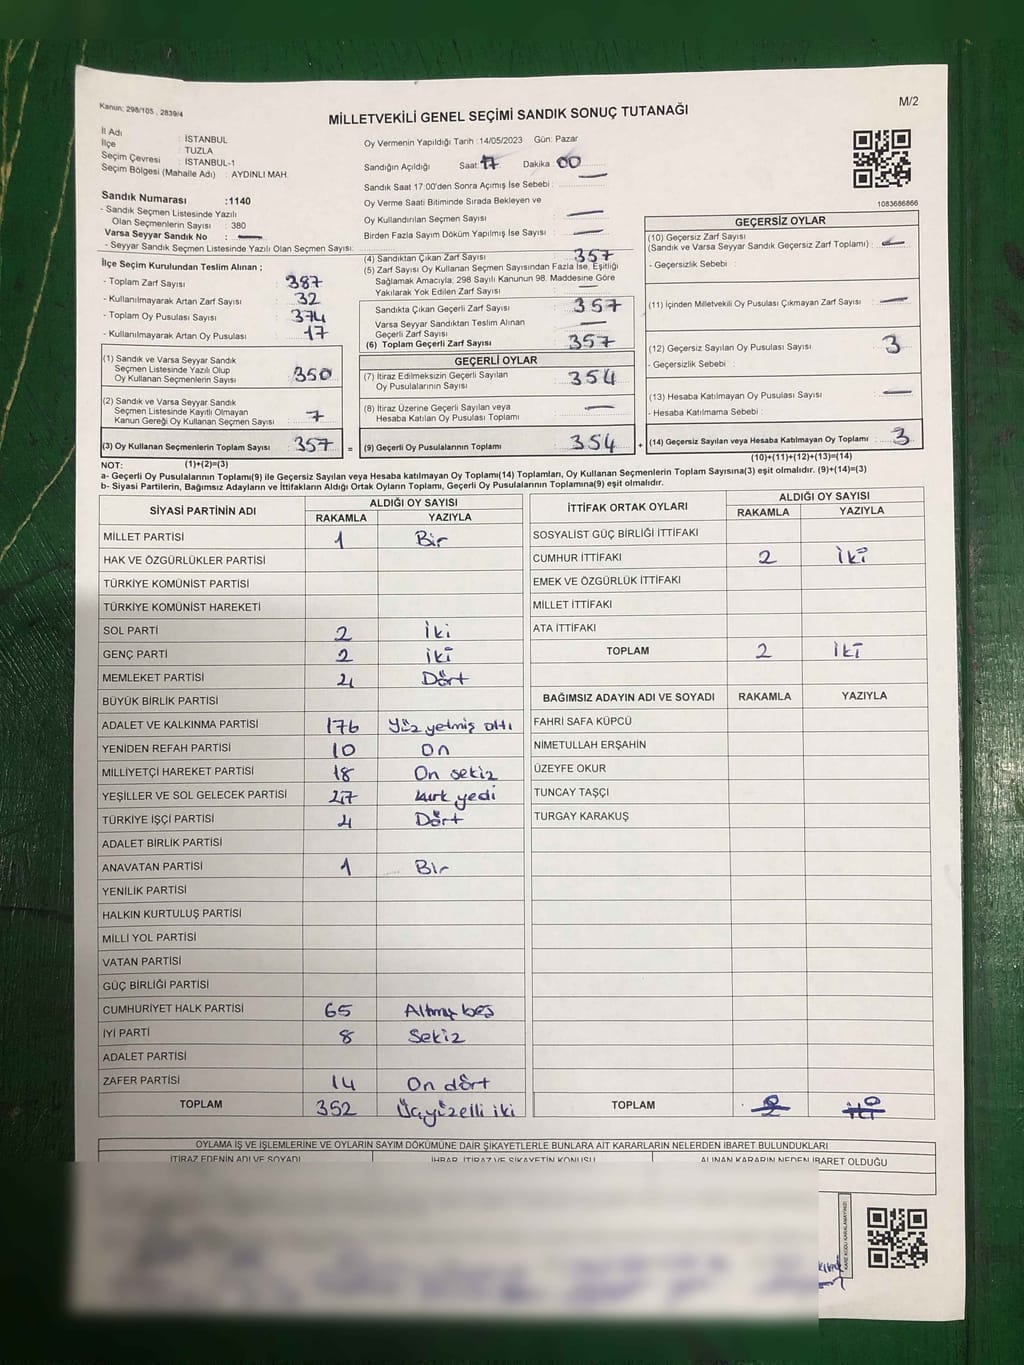 Kanun: 298/105, 2839/4
M/2
MİLLETVEKİLİ GENEL SEÇİMİ SANDIK SONUÇ TUTANAĞI
İl Adı : İSTANBUL
İlçe : TUZLA
Seçim Çevresi : İSTANBUL-1
Seçim Bölgesi (Mahalle Adı) : AYDINLI MAH.
Sandık Numarası :1140
- Sandık Seçmen Listesinde Yazılı
Olan Seçmenlerin Sayısı : 380
Varsa Seyyar Sandık No : —
- Seyyar Sandık Seçmen Listesinde Yazılı Olan Seçmen Sayısı:
Oy Vermenin Yapıldığı Tarih :14/05/2023 Gün: Pazar
Sandığın Açıldığı Saat 17 Dakika 00
Sandık Saat 17:00'den Sonra Açımış İse Sebebi : —
Oy Verme Saati Bitiminde Sırada Bekleyen ve
Oy Kullandırılan Seçmen Sayısı : —
Birden Fazla Sayım Döküm Yapılmış İse Sayısı : —
1083686866
İlçe Seçim Kurulundan Teslim Alınan ;
- Toplam Zarf Sayısı : 387
- Kullanılmayarak Artan Zarf Sayısı : 32
- Toplam Oy Pusulası Sayısı : 374
- Kullanılmayarak Artan Oy Pusulası : 17
(1) Sandık ve Varsa Seyyar Sandık
Seçmen Listesinde Yazılı Olup
Oy Kullanan Seçmenlerin Sayısı : 350
(2) Sandık ve Varsa Seyyar Sandık
Seçmen Listesinde Kayıtlı Olmayan
Kanun Gereği Oy Kullanan Seçmen Sayısı : 7
(3) Oy Kullanan Seçmenlerin Toplam Sayısı : 357 =
(1)+(2)=(3)
(4) Sandıktan Çıkan Zarf Sayısı : 357
(5) Zarf Sayısı Oy Kullanan Seçmen Sayısından Fazla İse, Eşitliği
Sağlamak Amacıyla, 298 Sayılı Kanunun 98. Maddesine Göre
Yakılarak Yok Edilen Zarf Sayısı : —
Sandıkta Çıkan Geçerli Zarf Sayısı : 357
Varsa Seyyar Sandıktan Teslim Alınan
Geçerli Zarf Sayısı : —
(6) Toplam Geçerli Zarf Sayısı : 357
GEÇERLİ OYLAR
(7) İtiraz Edilmeksizin Geçerli Sayılan
Oy Pusulalarının Sayısı : 354
(8) İtiraz Üzerine Geçerli Sayılan veya
Hesaba Katılan Oy Pusulası Toplamı : —
(9) Geçerli Oy Pusulalarının Toplamı : 354 +
GEÇERSİZ OYLAR
(10) Geçersiz Zarf Sayısı
(Sandık ve Varsa Seyyar Sandık Geçersiz Zarf Toplamı) : —
- Geçersizlik Sebebi :
(11) İçinden Milletvekili Oy Pusulası Çıkmayan Zarf Sayısı : —
(12) Geçersiz Sayılan Oy Pusulası Sayısı : 3
- Geçersizlik Sebebi :
(13) Hesaba Katılmayan Oy Pusulası Sayısı : —
- Hesaba Katılmama Sebebi :
(14) Geçersiz Sayılan veya Hesaba Katılmayan Oy Toplamı : 3
(10)+(11)+(12)+(13)=(14)
NOT:
a- Geçerli Oy Pusulalarının Toplamı(9) ile Geçersiz Sayılan veya Hesaba katılmayan Oy Toplamı(14) Toplamları, Oy Kullanan Seçmenlerin Toplam Sayısına(3) eşit olmalıdır. (9)+(14)=(3)
b- Siyasi Partilerin, Bağımsız Adayların ve İttifakların Aldığı Ortak Oyların Toplamı, Geçerli Oy Pusulalarının Toplamına(9) eşit olmalıdır.
SİYASİ PARTİNİN ADI ALDIĞI OY SAYISI
RAKAMLA YAZIYLA
MİLLET PARTİSİ 1 Bir
HAK VE ÖZGÜRLÜKLER PARTİSİ
TÜRKİYE KOMÜNİST PARTİSİ
TÜRKİYE KOMÜNİST HAREKETİ
SOL PARTİ 2 İki
GENÇ PARTİ 2 iki
MEMLEKET PARTİSİ 4 Dört
BÜYÜK BİRLİK PARTİSİ
ADALET VE KALKINMA PARTİSİ 176 Yüz yetmiş altı
YENİDEN REFAH PARTİSİ 10 On
MİLLİYETÇİ HAREKET PARTİSİ 18 On sekiz
YEŞİLLER VE SOL GELECEK PARTİSİ 47 kırk yedi
TÜRKİYE İŞÇİ PARTİSİ 4 Dört
ADALET BİRLİK PARTİSİ
ANAVATAN PARTİSİ 1 Bir
YENİLİK PARTİSİ
HALKIN KURTULUŞ PARTİSİ
MİLLİ YOL PARTİSİ
VATAN PARTİSİ
GÜÇ BİRLİĞİ PARTİSİ
CUMHURİYET HALK PARTİSİ 65 Altmış beş
İYİ PARTİ 8 Sekiz
ADALET PARTİSİ
ZAFER PARTİSİ 14 On dört
TOPLAM 352 Üçyüzelli iki
İTTİFAK ORTAK OYLARI ALDIĞI OY SAYISI
RAKAMLA YAZIYLA
SOSYALİST GÜÇ BİRLİĞİ İTTİFAKI
CUMHUR İTTİFAKI 2 İki
EMEK VE ÖZGÜRLÜK İTTİFAKI
MİLLET İTTİFAKI
ATA İTTİFAKI
TOPLAM 2 İki
BAĞIMSIZ ADAYIN ADI VE SOYADI RAKAMLA YAZIYLA
FAHRİ SAFA KÜPCÜ
NİMETULLAH ERŞAHİN
ÜZEYFE OKUR
TUNCAY TAŞÇI
TURGAY KARAKUŞ
TOPLAM 2 iki
OYLAMA İŞ VE İŞLEMLERİNE VE OYLARIN SAYIM DÖKÜMÜNE DAİR ŞİKAYETLERLE BUNLARA AİT KARARLARIN NELERDEN İBARET BULUNDUKLARI
İTİRAZ EDENİN ADI VE SOYADI İHBAR, İTİRAZ VE ŞİKAYETİN KONUSU ALINAN KARARIN NEDEN İBARET OLDUĞU
KARE KODU KARALAMAYINIZ!